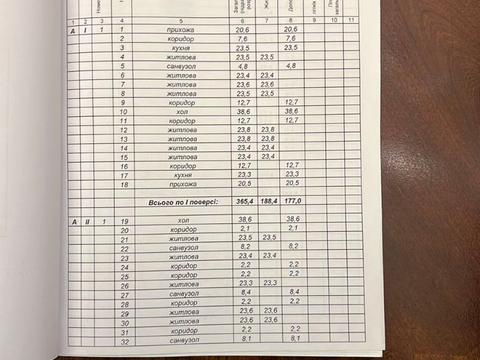 1 2 3 4 5 6 7 8 9 10 11
А I 1 1 прихожа 20,6 20,6
2 коридор 7,6 7,6
3 кухня 23,5 23,5
4 житлова 23,5 23,5
5 санвузол 4,8 4,8
6 житлова 23,4 23,4
7 житлова 23,6 23,6
8 житлова 23,5 23,5
9 коридор 12,7 12,7
10 хол 38,6 38,6
11 коридор 12,7 12,7
12 житлова 23,8 23,8
13 житлова 23,8 23,8
14 житлова 23,4 23,4
15 житлова 23,4 23,4
16 коридор 12,7 12,7
17 кухня 23,3 23,3
18 прихожа 20,5 20,5
Всього по I поверсі: 365,4 188,4 177,0
А II 1 19 хол 38,6 38,6
20 коридор 2,1 2,1
21 житлова 23,5 23,5
22 санвузол 8,2 8,2
23 житлова 23,4 23,4
24 коридор 2,2 2,2
25 коридор 2,2 2,2
26 житлова 23,3 23,3
27 санвузол 8,4 8,4
28 коридор 2,2 2,2
29 житлова 23,6 23,6
30 житлова 23,6 23,6
31 коридор 2,2 2,2
32 санвузол 8,1 8,1